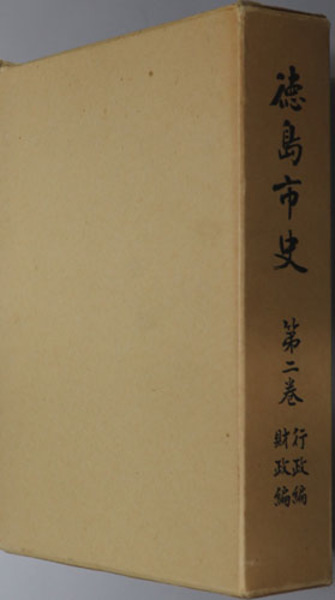 徳島市史
第二巻
行政編
財政編